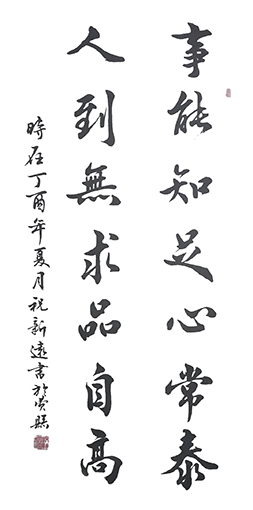 事能知足心常泰
人到無求品自高
時在丁酉年夏月祝新遠書於